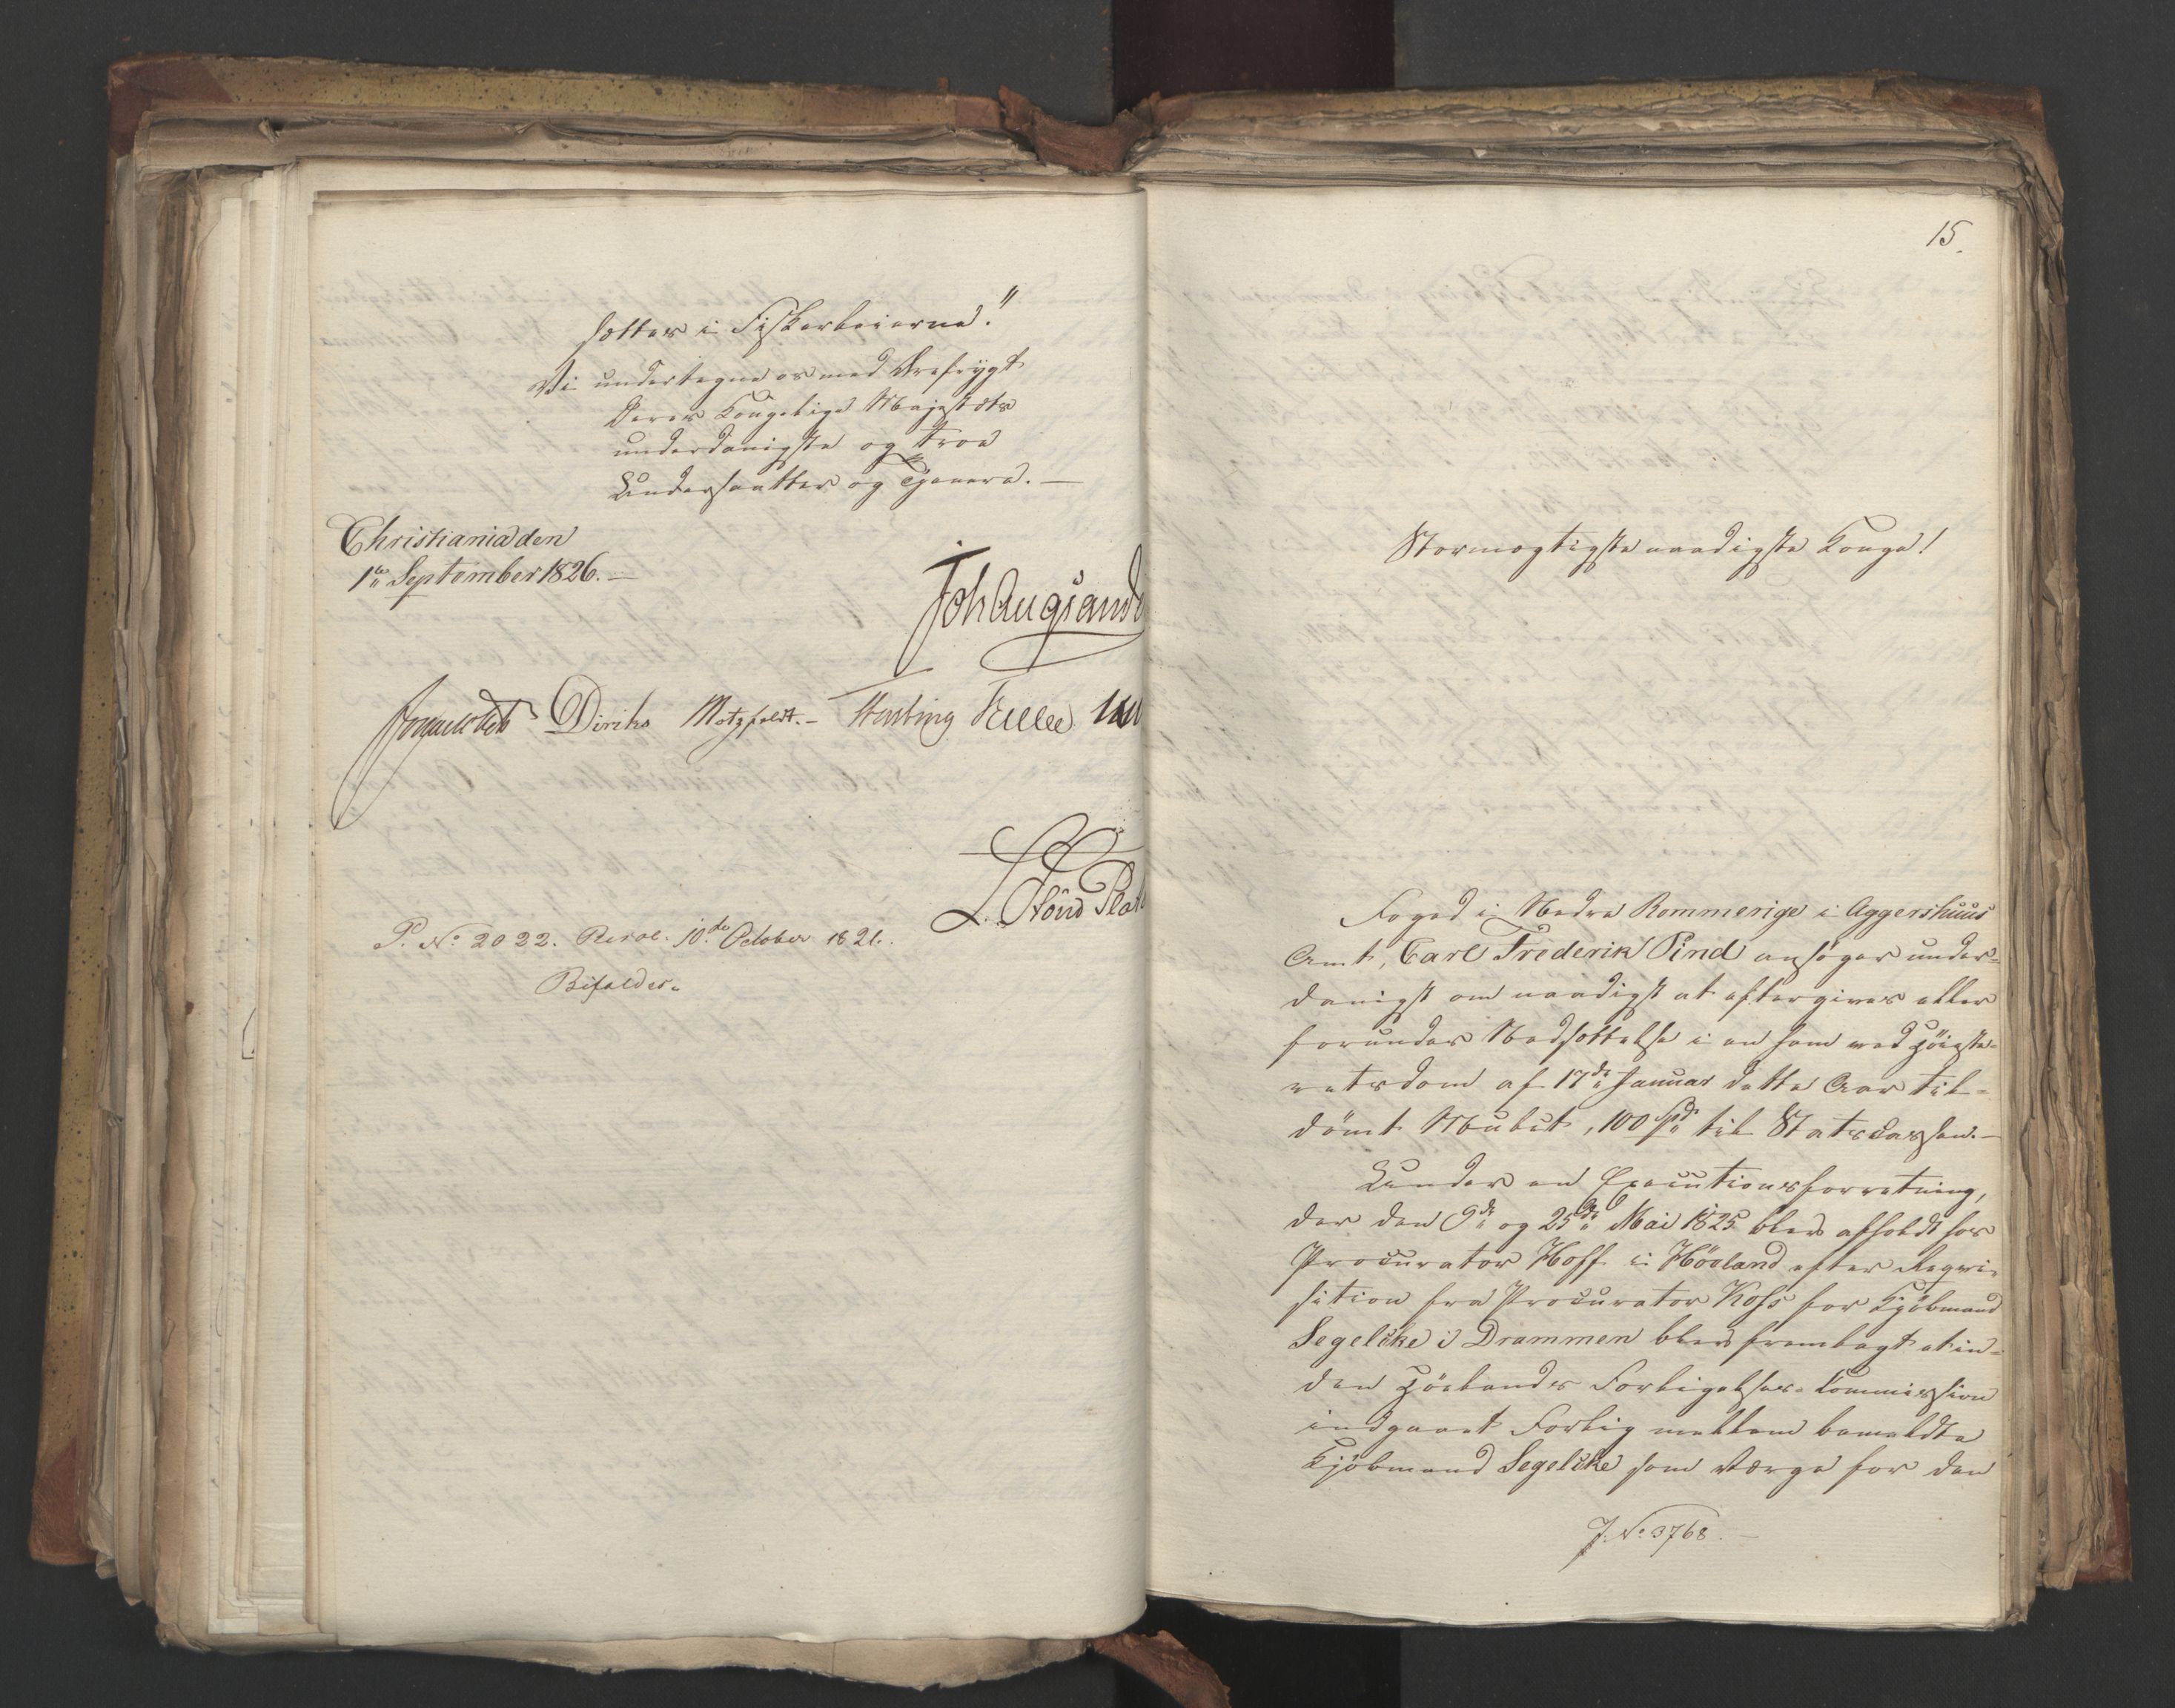 sættes i Fiskerleierne."
Vi undertegne os med Ærefrygt
Deres Kongelige Majestæts
underdanigste og troe
Undersaatter og Tjenere.—
Christiania den
1te September 1826.—
Joh Aug Sand
Sommerhielm Diriks Motzfeldt.— Hersleb Collett
L. Stoud Plat
P. No 2022. Resol. 10de October 1826.
Bifaldes.
15.
Stormægtigste naadigste Konge!
Foged i Nedre Rommerige i Aggershuus
Amt, Carl Frederik Pind ansøger under=
danigst om naadigst at eftergives eller
forundes Nedsættelse i en ham ved Höieste=
retsdom af 17de Januar dette Aar til=
dömt Mulct, 100 Spd til Statscassen.—
Under en Executionsforretning,
der den 9de og 25de Mai 1825 blev afholdt hos
Procurator Hoff i Höland efter Reqvi=
sition fra Procurator Koss for Kjöbmand
Segelcke i Drammen blev fremlagt et in=
den Hölands Forligelses-Kommission
indgaaet Forlig mellem bemeldte
Kjöbmand Segelcke som Værge for den
J. No 3768.—